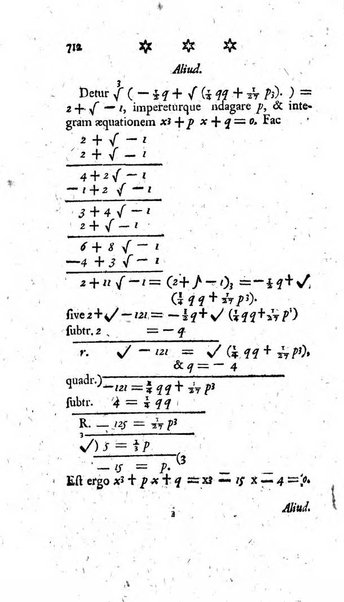 712 ✡ ✡ ✡
Aliud.
Detur ∛ ( — ½ q + √ (¼ qq + 1/27 p3). ) =
2 + √ — 1, impereturque indagare p, & inte-
gram æquationem x3 + p x + q = 0. Fac
2 + √ — 1
2 + √ — 1
4 + 2 √ — 1
— 1 + 2 √ — 1
3 + 4 √ — 1
2 + √ — 1
6 + 8 √ — 1
— 4 + 3 √ — 1
2 + 11 √ — 1 = (2 + √ — 1)3 = — ½ q + √
(¼ qq + 1/27 p3).
sive 2 + √ — 121 = — ½ q + √ (¼ qq + 1/27 p3)
subtr. 2 = — q
r. √ — 121 = √ (¼ qq + 1/27 p3),
& q = — 4
quadr.) — 121 = ¼ qq + 1/27 p3
subtr. 4 = ¼ qq
R. — 125 = 1/27 p3
∛) 5 = ⅓ p
— 15 = p. (3
Est ergo x3 + p x + q = x3 — 15 x — 4 = 0.
Aliud.